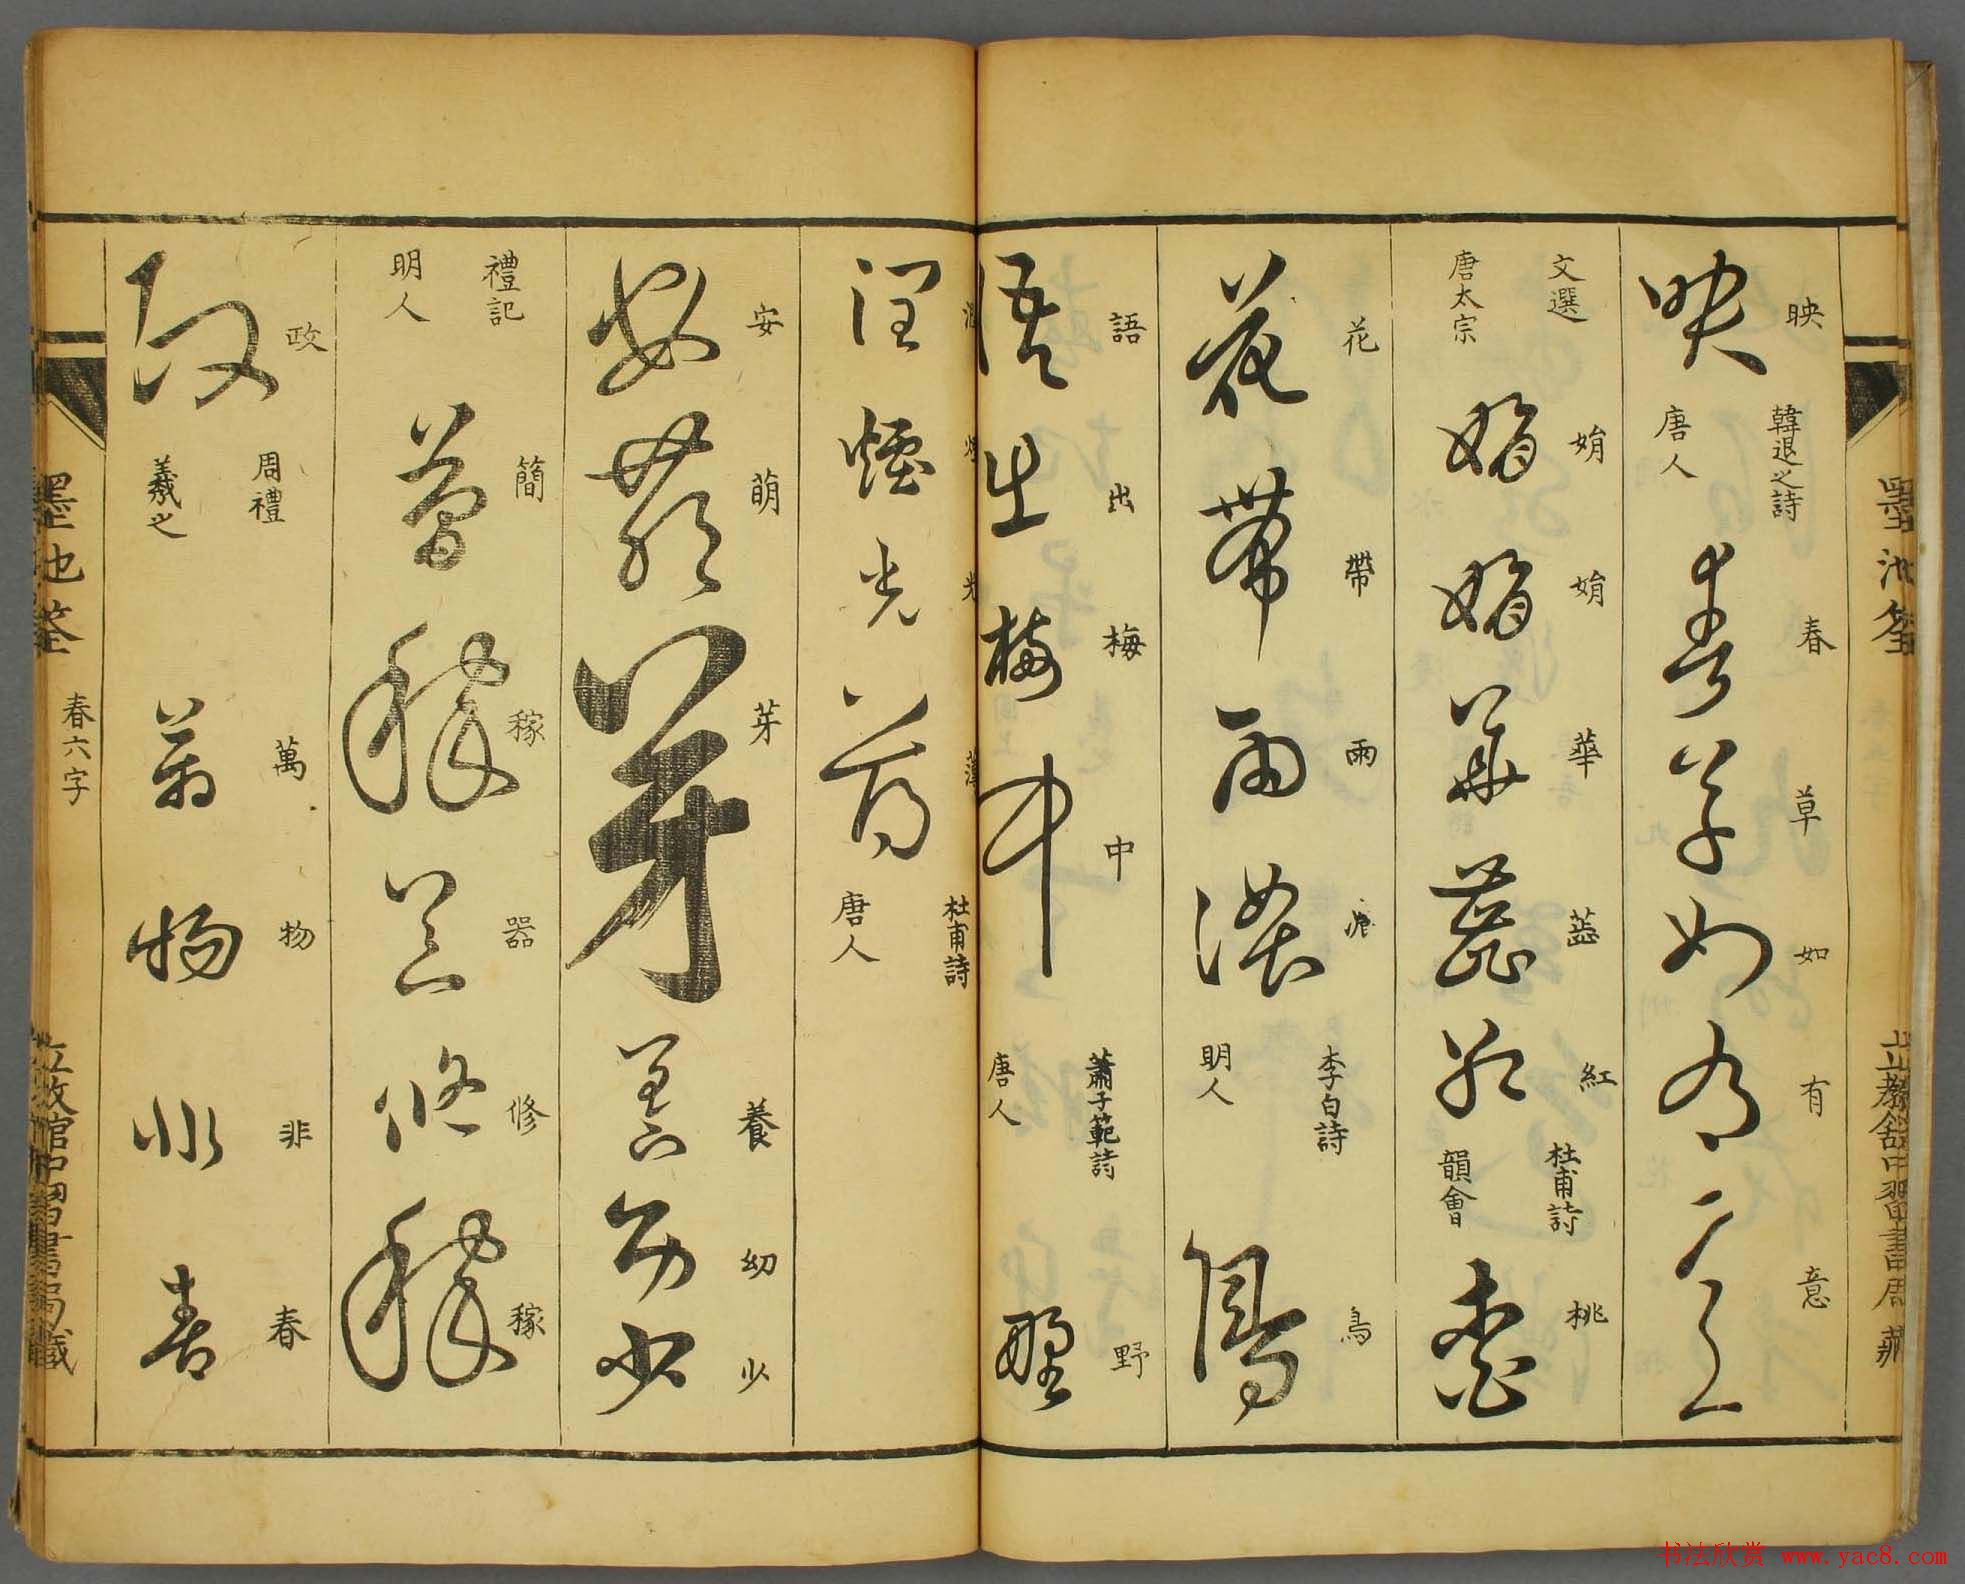 墨池筌
立教館中習書局藏
映 韓退之詩 唐人 春草如有意
文選 唐太宗 娟娟華蕋紅 杜甫詩 韻會 桃
花帶雨濃 李白詩 明人 鳥
語出梅中 蕭子範詩 唐人 野
潤煙光薄 杜甫詩 唐人
安萌芽養幼少
禮記 明人 簡稼器修稼
政 周禮 羲之 萬物非春
墨池筌
春六字
立教館中習書局藏
书法欣赏 www.yac8.com